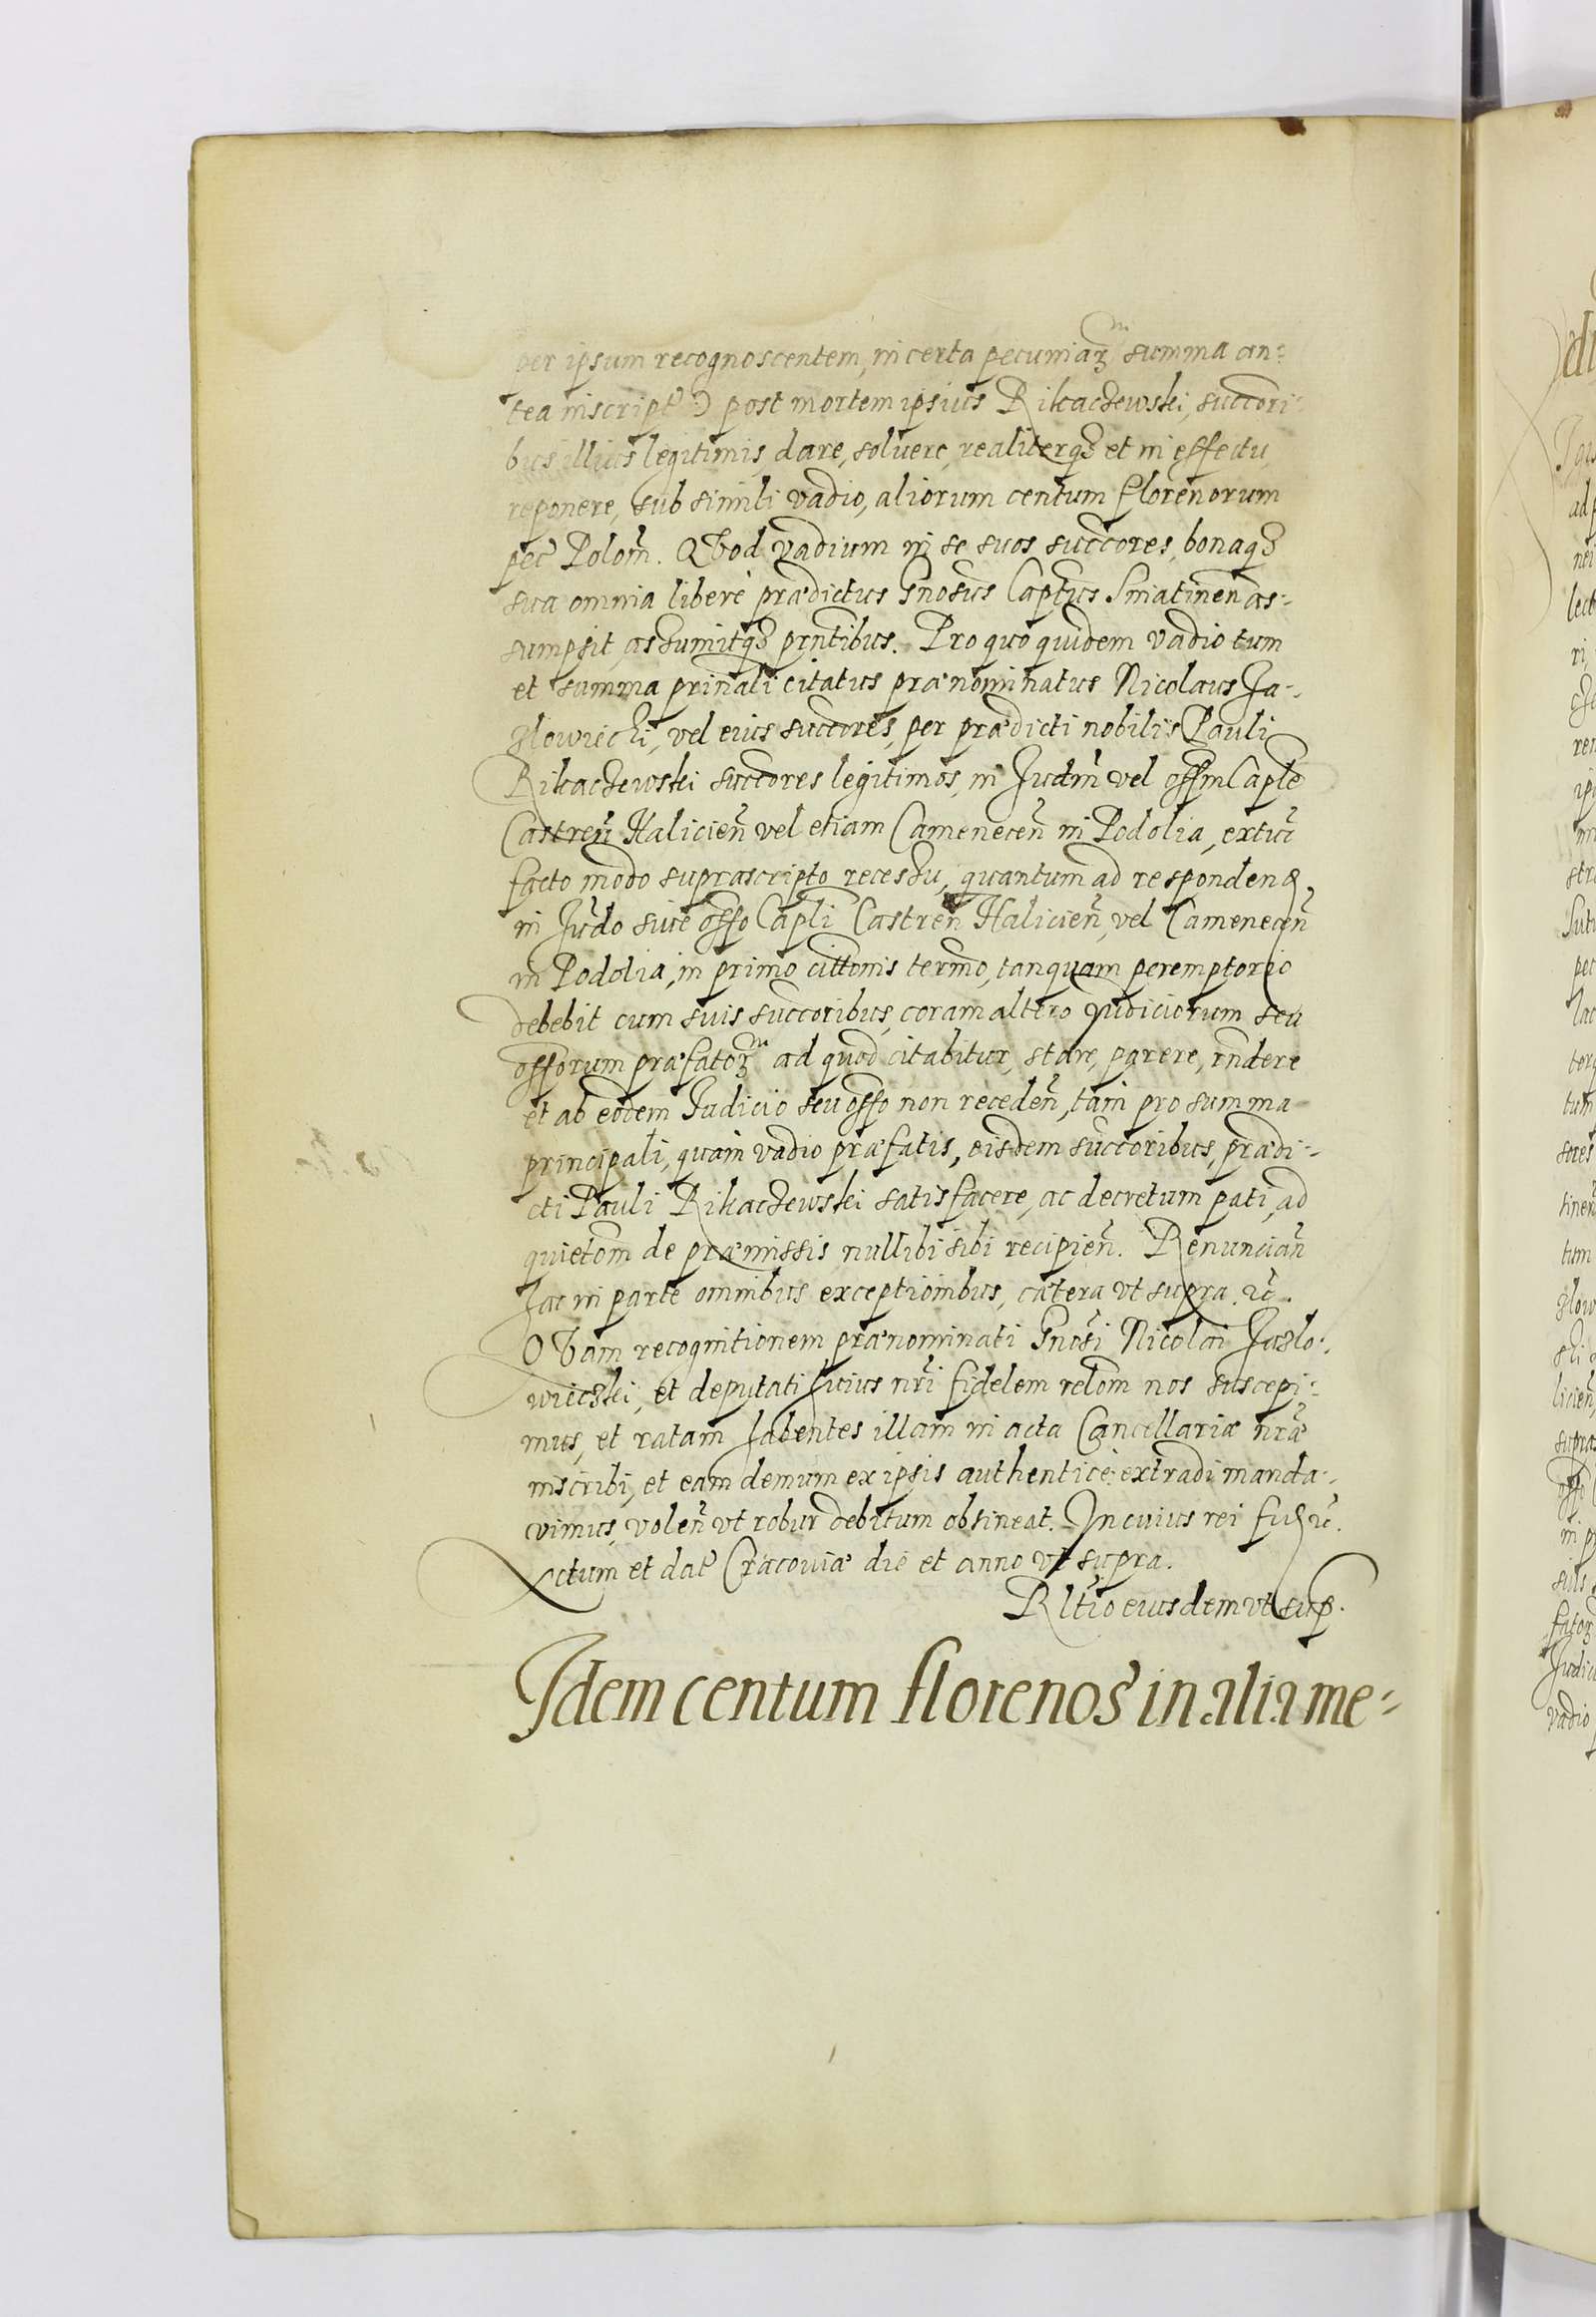 per ipsum recognoscentem, in certa pecuniaꝝ summa an-
tea inscript̃) post mortem ipsius Rikaczewski, succori-
bus illius legitimis, dare, soluere, realiterqȝ et in effectu
reponere, sub simili vadio, aliorum centum florenorum
pec̃ Polom̃. Quod vadium in se suos succores, bonaqȝ
sua omnia liberè prædictus Gnosus Captus Sniatinen̄ as-
sumpsit, assumitqȝ prn̄tibus. Pro quo quidem vadio tum
et summa prin̄ali citatus prænominatus Nicolaus Ja-
zlowiecki, vel eius succores, per prædicti nobilis Pauli
Rikaczewski succores legitimos, in Judm̄ vel offm Caple
Castren̄ Halicien̄ vel etiam Camenecen̄ in Podolia, extuc̃
facto modo suprascripto recessu, quantum ad responden̄,
in Judo siue offo Capli Castren̄ Halicien̄, vel Camenecen̄
in Podolia, in primo cittonis termo, tanquam peremptorio
debebit cum suis succoribus, coram altero Judiciorum seu
offorum præfatoꝝ ad quod citabitur, stare, parere, rn̄dere
et ab eodem Judicio seu offo non receden̄, tàm pro summa
principali, quàm vadio præfatis, eisdem succoribus, prædi-
cti Pauli Rikaczewski satisfacere, ac decretum pati, ad
quietom de præmissis nullibi sibi recipien̄. Renuncian̄
hac in parte omnibus exceptionibus, cætera vt supra. ꝛc̃.
Quam recognitionem prænominati Gnosi Nicolai Jazlo-
wieczki, et deputati huius nr̃i fidelem relom nos suscepi-
mus, et ratam habentes illam in acta Cancellariæ nr̃æ
inscribi, et eam demum ex ipsis authenticè extradi manda-
vimus, volen̄ vt robur debitum obtineat. In cuius rei fid ꝛc̃.
Actum et dat̃ Cracouiæ die et anno vt supra.
Rltio eiusdem vt sup̃.
Idem centum florenos in alia me-